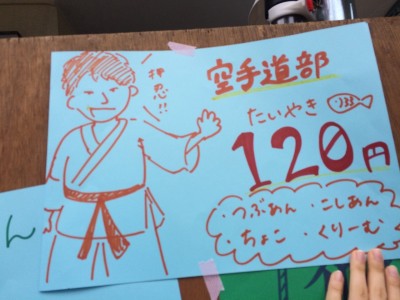 押忍!!
空手道部
たいやき
120円
・つぶあん ・こしあん
・ちょこ ・くりーむ
ん